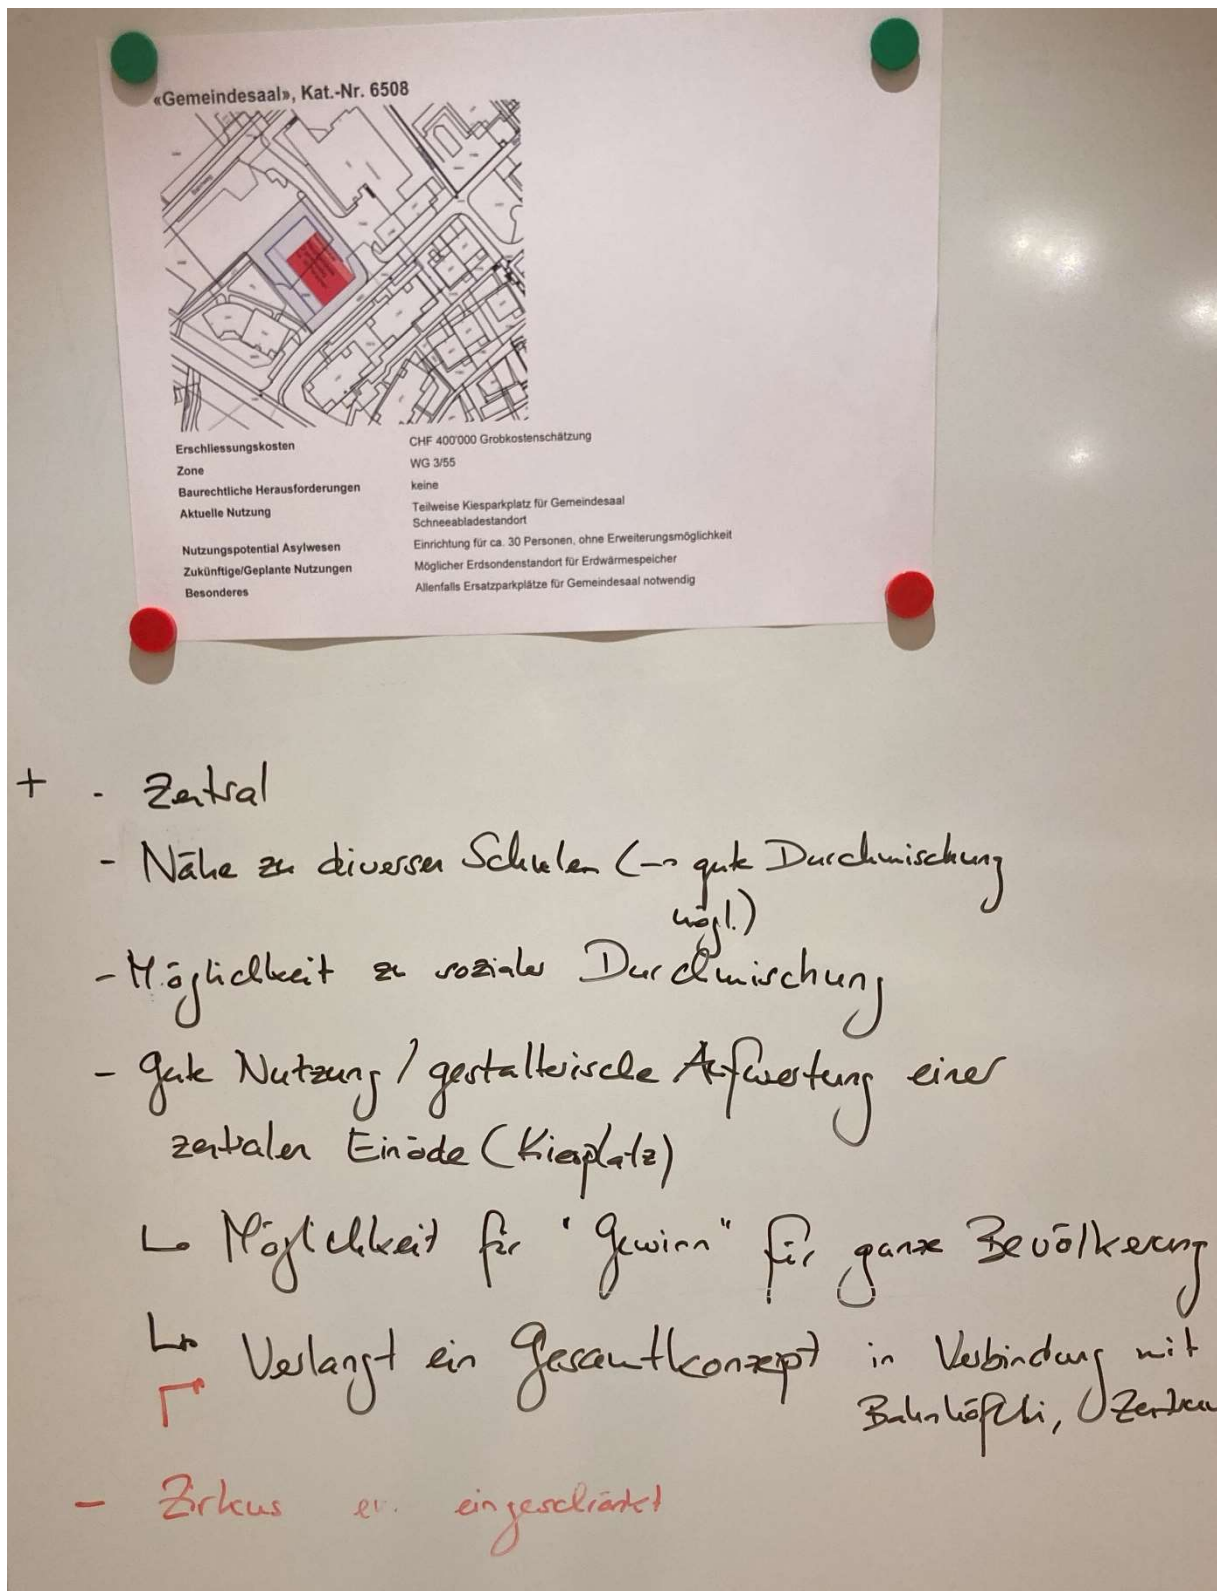 «Gemeindesaal», Kat.-Nr. 6508
Erschliessungskosten CHF 400'000 Grobkostenschätzung
Zone WG 3/55
Baurechtliche Herausforderungen keine
Aktuelle Nutzung Teilweise Kiesparkplatz für Gemeindesaal
Schneeabladestandort
Nutzungspotential Asylwesen Einrichtung für ca. 30 Personen, ohne Erweiterungsmöglichkeit
Zukünftige/Geplante Nutzungen Möglicher Erdsondenstandort für Erdwärmespeicher
Besonderes Allenfalls Ersatzparkplätze für Gemeindesaal notwendig
+ - Zentral
- Nähe zu diversen Schulen (→ gute Durchmischung
mögl.)
- Möglichkeit zu sozialer Durchmischung
- gute Nutzung / gestalterische Aufwertung einer
zentralen Einöde (Kiesplatz)
↳ Möglichkeit für "Gewinn" für ganze Bevölkerung
↳ Verlangt ein Gesamtkonzept in Verbindung mit
Bahnhöfli,
- Zirkus ev. eingeschränkt